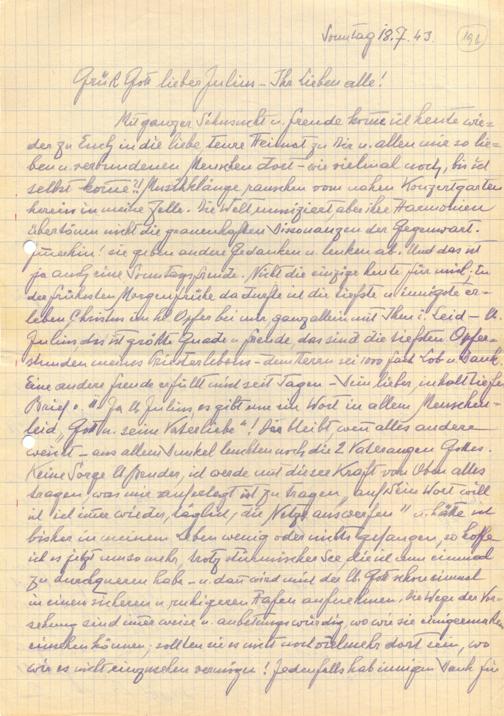 Sonntag 18.7.43. 191
Grüß Gott lieber Julius – Ihr Lieben alle!
Mit ganzer Sehnsucht u. Freude komme ich heute wie=
der zu Euch in die liebe teure Heimat zu Dir u. allen mir so lie=
ben u. verbundenen Menschen dort – wie vielmal noch, bis ich
selbst komme?! Musikklänge rauschen vom nahen Konzertgarten
herein in meine Zelle. Die Welt musiziert, aber ihre Harmonien
übertönen nicht die grauenhaften Dissonanzen der Gegenwart.
Immerhin! sie geben andere Gedanken u. lenken ab. Und das ist
ja auch eine Sonntagsfreude. Nicht die einzige heute für mich; in
der frühesten Morgenfrühe da durfte ich die tiefste u. innigste er=
leben Christus im hl. Opfer bei mir, ganz allein mit Ihm i. Leid – lb.
Julius, das ist größte Gnade u. Freude, das sind die tiefsten Opfer=
stunden meines Priesterlebens – dem Herrn sei 1000 fach Lob u. Dank.
Eine andere Freude erfüllt mich seit Tagen – Dein lieber, inhaltstiefer
Brief. Ja lb. Julius, es gibt nur ein Wort in allem Menschen=
leid, "Gott u. seine Vaterliebe"! Die bleibt wenn alles andere
weicht – aus allem Dunkel leuchten noch die 2 Vateraugen Gottes.
Keine Sorge lb. Bruder, ich werde mit dieser Kraft von Oben alles
tragen, was mir auferlegt ist zu tragen, "auf Dein Wort will
ich immer wieder, täglich, die Netze auswerfen" u. hätte ich
bisher in meinem Leben wenig oder nichts gefangen, so hoffe
ich es jetzt umso mehr, trotz stürmischer See, die ich nun einmal
zu durchqueren habe – u. dann wird mich der lb. Gott schon einmal
in einen sicheren u. ruhigeren Hafen aufnehmen. Die Wege der Vor=
sehung sind immer weise u. anbetungswürdig, wo wir sie einigermaßen
einsehen können; sollten sie es nicht noch vielmehr dort sein, wo
wir es nicht einzusehen vermögen! Jedenfalls hab innigen Dank für